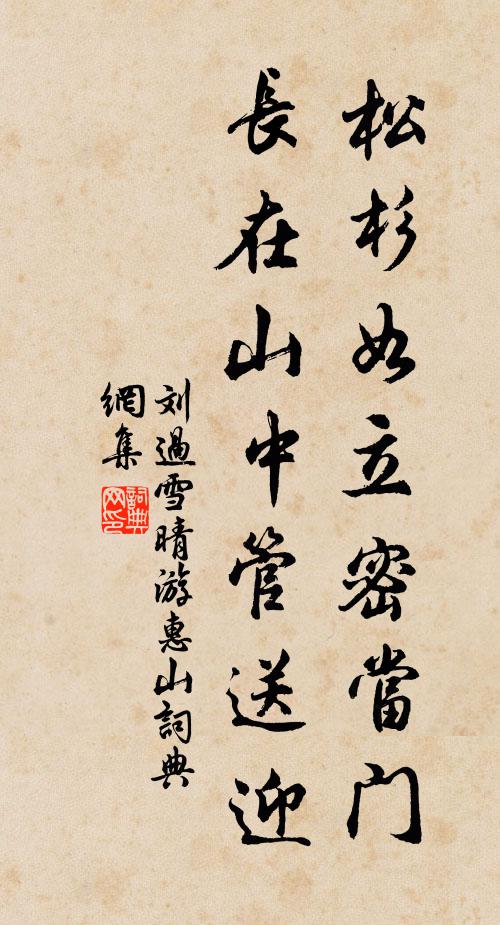 松杉如立密當門
長在山中管送迎
刘過雪晴游惠山詞典
網集
詞典
网印